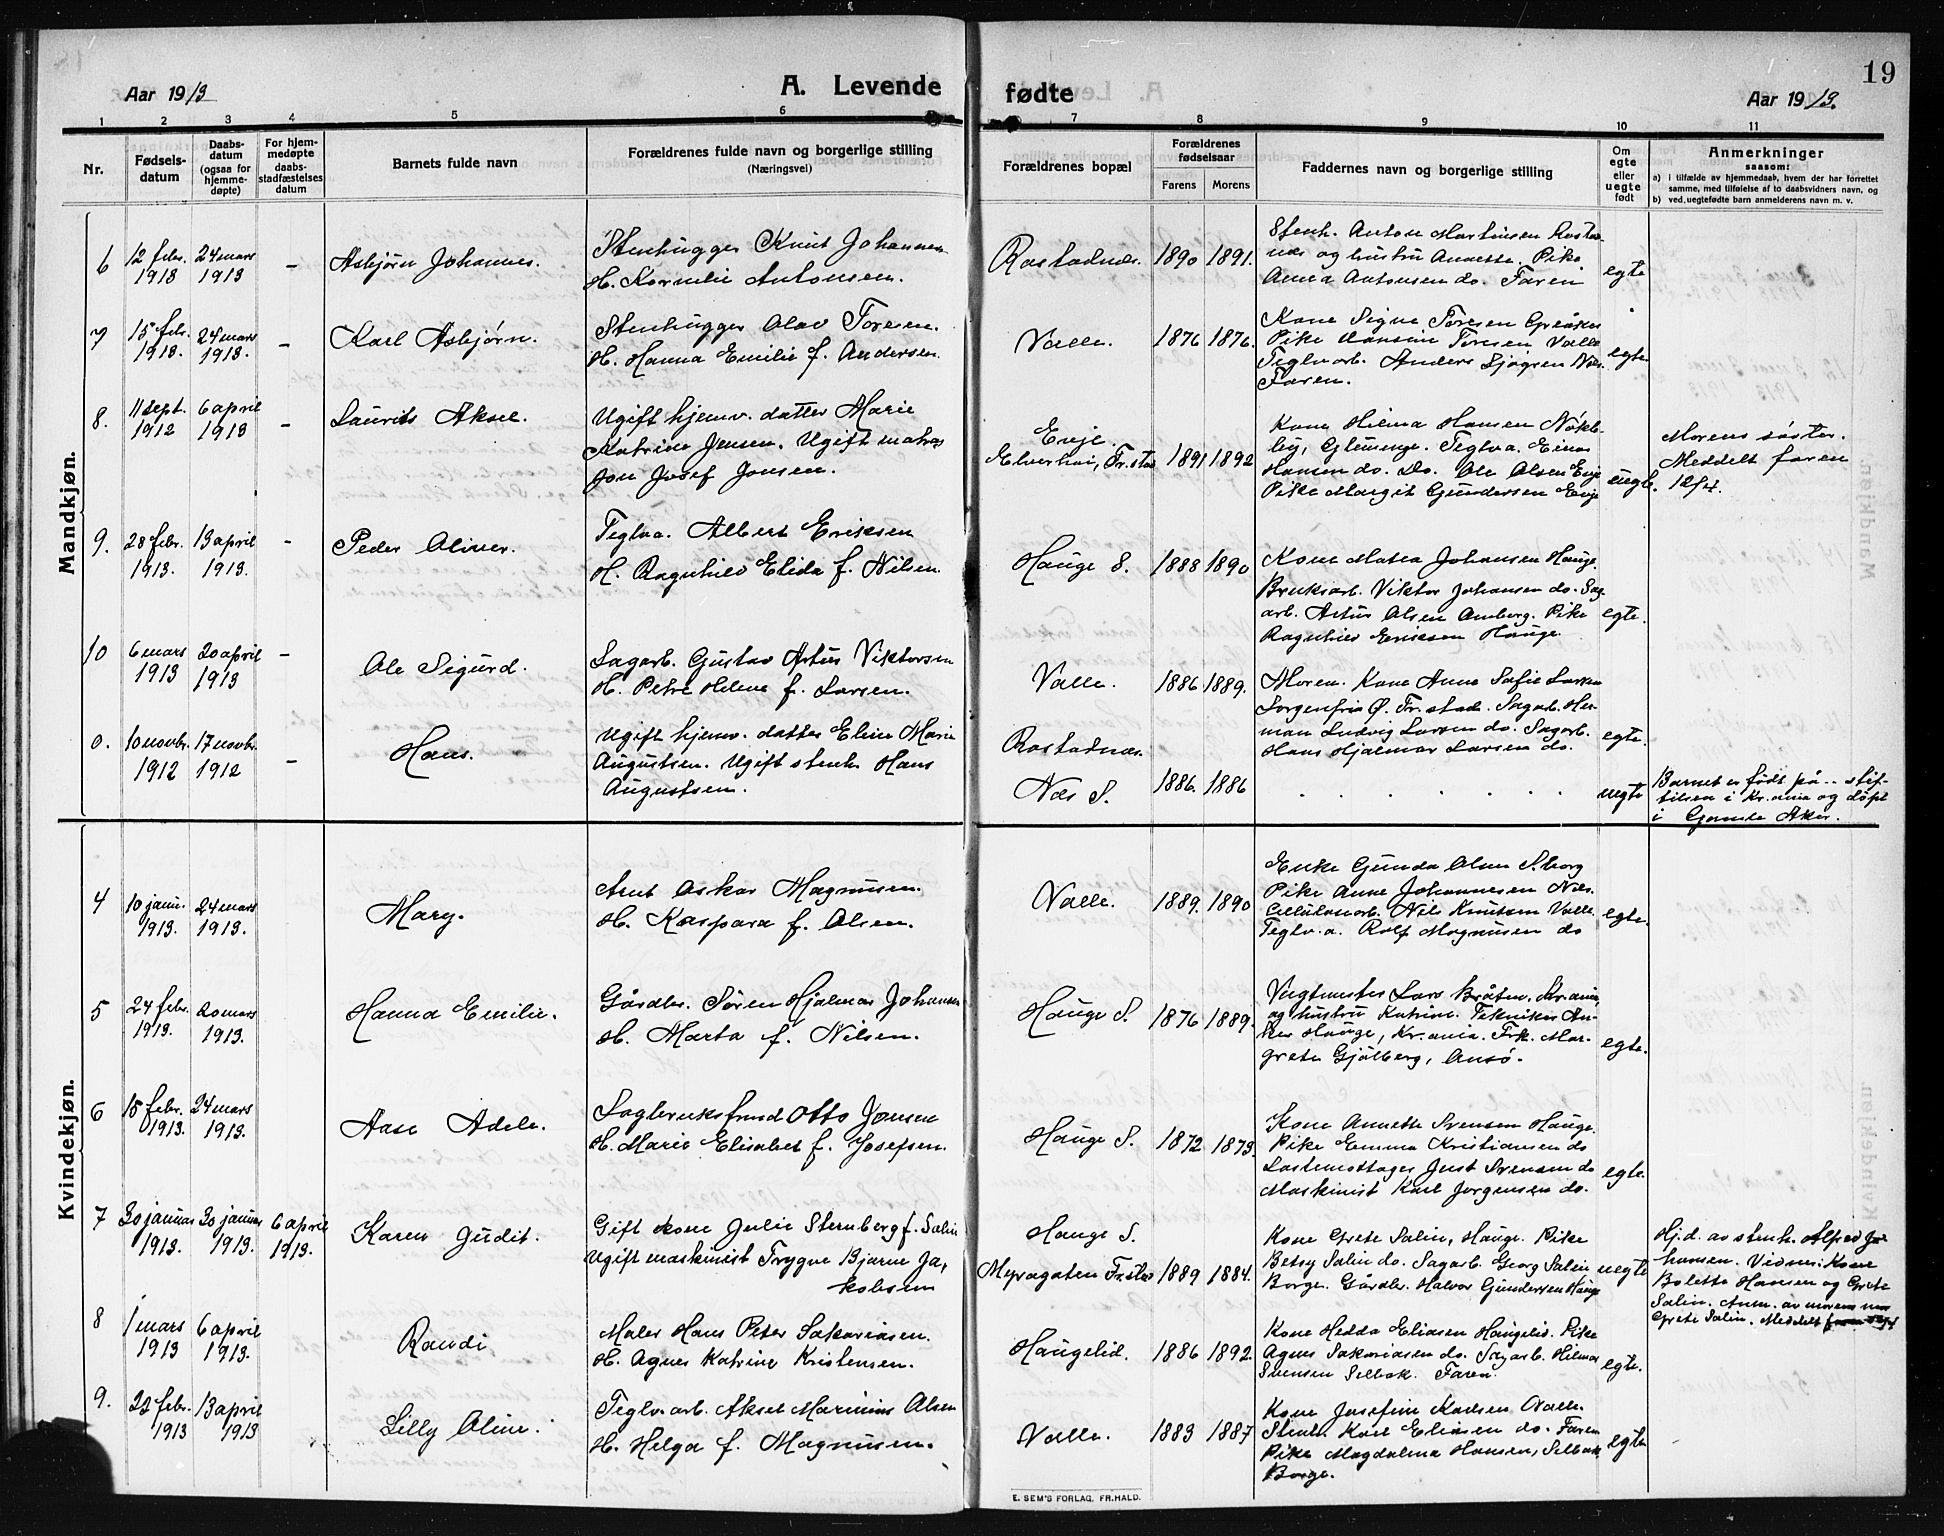 19
Aar 1913
A. Levende
fødte
Aar 1913.
1 2 3 4 5 6 7 8 9 10 11
Nr.
Fødselsdatum
Daabsdatum (ogsaa for hjemmedøpte)
For hjemmedøpte daabsstadfæstelses datum
Barnets fulde navn
Forældrenes fulde navn og borgerlige stilling
(Næringsvei)
Forældrenes bopæl
Forældrenes fødselsaar
Farens Morens
Faddernes navn og borgerlige stilling
Om egte eller uegte født
Anmerkninger
saasom:
a) i tilfælde av hjemmedaab, hvem der har forrettet
samme, med tilføielse af to daabsvidners navn, og
b) ved uegtefødte barn anmelderens navn m. v.
Mandkjøn.
6 12 febr. 1913 24 mars 1913 - Asbjørn Johannes.
Stenhugger Knut Johannen
H. Kornelie Antonsen.
Rostadnæs. 1890 1891.
Stenh. Anton Martinsen Rostad-
næs og hustru Annette. Pike
Anna Antonsen do. Faren
egte
7 15 febr. 1913. 24 mars 1913. - Karl Asbjørn.
Stenhugger Olav Toresen.
H. Hanna Emilie f. Andersen.
Valle. 1876 1876.
Kone Signe Toresen Greåker
Pike Hansine Toresen Valle
Teglv.arb. Anders Sjøgren Næs.
Faren.
egte
8. 11 sept. 1912 6 april 1913 - Laurits Aksel.
Ugift hjemv. datter Marie
Katrine Jensen. Ugift matros
Jon Josef Jonsen.
Evje.
Elverhøi, Fr.stad 1891 1892
Kone Hilma Hansen Nökle-
by, Glemmge. Teglv.a. Einar
Hansen do. Do. Ole Olsen Evje
Pike Margit Gundersen Evje
uegte.
Morens søster.
Meddelt faren
12/4.
9. 28 febr. 1913. 13 april 1913. - Peder Oliver.
Teglv.a. Albert Eriksen
H. Ragnhild Elida f. Nilsen.
Hauge S. 1888 1890
Kone Matea Johansen Hauge.
Bruksarb. Viktor Johansen do. Sag-
arb. Artur Olsen Omberg. Pike
Ragnhild Eriksen Hauge.
egte.
10 6 mars 1913 20 april 1913 - Ole Sigurd.
Sagarb. Gustav Artur Viktorsen
H. Petra Helene f. Larsen.
Valle. 1886 1889.
Moren. Kone Anna Sofie Larsen
Sorgenfri Ø. Fr.stad. Sagarb. Her-
man Ludvig Larsen do. Sagarb.
Hans Hjalmar Larsen do.
egte.
0. 10 novbr. 1912 17 novbr. 1912 - Hans.
Ugift hjemv. datter Eline Marie
Augustsen. Ugift stenh. Hans
Augustsen.
Rostadnæs.
Næs S. 1886. 1886
. . . . . .
uegte
Barnet er født på .. stif-
telsen i Kr.ania og døpt
i Gamle Aker.
Kvindekjøn.
4 10 janu. 1913. 24 mars 1913. Mary.
Arnt Oskar Magnusen.
H. Kaspara f. Olsen.
Valle. 1889. 1890
Enke Gunda Olsen S.borg
Pike Anna Johannesen Næs.
Cellulosearb. Nils Knutsen Valle.
Teglv.a. Rolf Magnusen do
egte.
5 24 febr. 1913. 20 mars 1913. Hanna Emilie.
Gårdbr. Søren Hjalmar Johansen
H. Marta f. Nilsen.
Hauge S. 1876 1889.
Vagtmester Lars Bråten, Kr.ania,
og hustru Katrine. Tekniker An-
ker Hauge, Kr.ania. Frk. Mar-
grete Gjølberg, Onsø.
egte.
6 15 febr. 1913. 24 mars 1913. Aase Adele.
Sagbruksfmd Otto Jonsen
H. Marie Elisabet f. Josefsen.
Hauge S. 1872 1873.
Kone Annette Svensen Hauge.
Pike Emma Kristiansen do
Lastemottager Just Svensen do
Maskinist Karl Jørgensen do.
egte.
7 30 januar 1913. 30 januar 1913. 6 april 1913. Karen Judit.
Gift kone Julie Sternberg f. Salin
Ugift maskinist Trygve Bjarne Ja-
kobsen
Hauge S.
Myragaten Fr.stad 1889 1884.
Kone Grete Salin, Hauge. Pike
Betsy Salin do. Sagarb. Georg Salin
Borge. Gårdbr. Halvor Gundersen Hauge
uegte
Hj.d. av stenh. Alfred Jo-
hansen. Vidner: Kone
Bolette Hansen og Grete
Salin. Anm. av morens mor
Grete Salin. Meddelt faren
8 1 mars 1913 6 april 1913. Randi
Maler Hans Peter Sakariasen.
H. Agnes Katrine Kristensen.
Haugelid. 1886 1892.
Kone Hedda Eliasen Haugelid. Pike
Agnes Sakariasen do. Sagarb. Hilmar
Svensen Selbak. Faren.
egte.
9. 22 febr. 1913 13 april 1913 Lilly Oline.
Teglv.arb. Aksel Marinius Olsen
H. Helga f. Magnusen.
Valle. 1883 1887
Kone Josefine Karlsen Valle.
Stenh. Karl Eliasen do. Faren
Pike Magdalena Hansen, Selbak,
Borge.
egte
E. SEM'S FORLAG, FR.HALD.